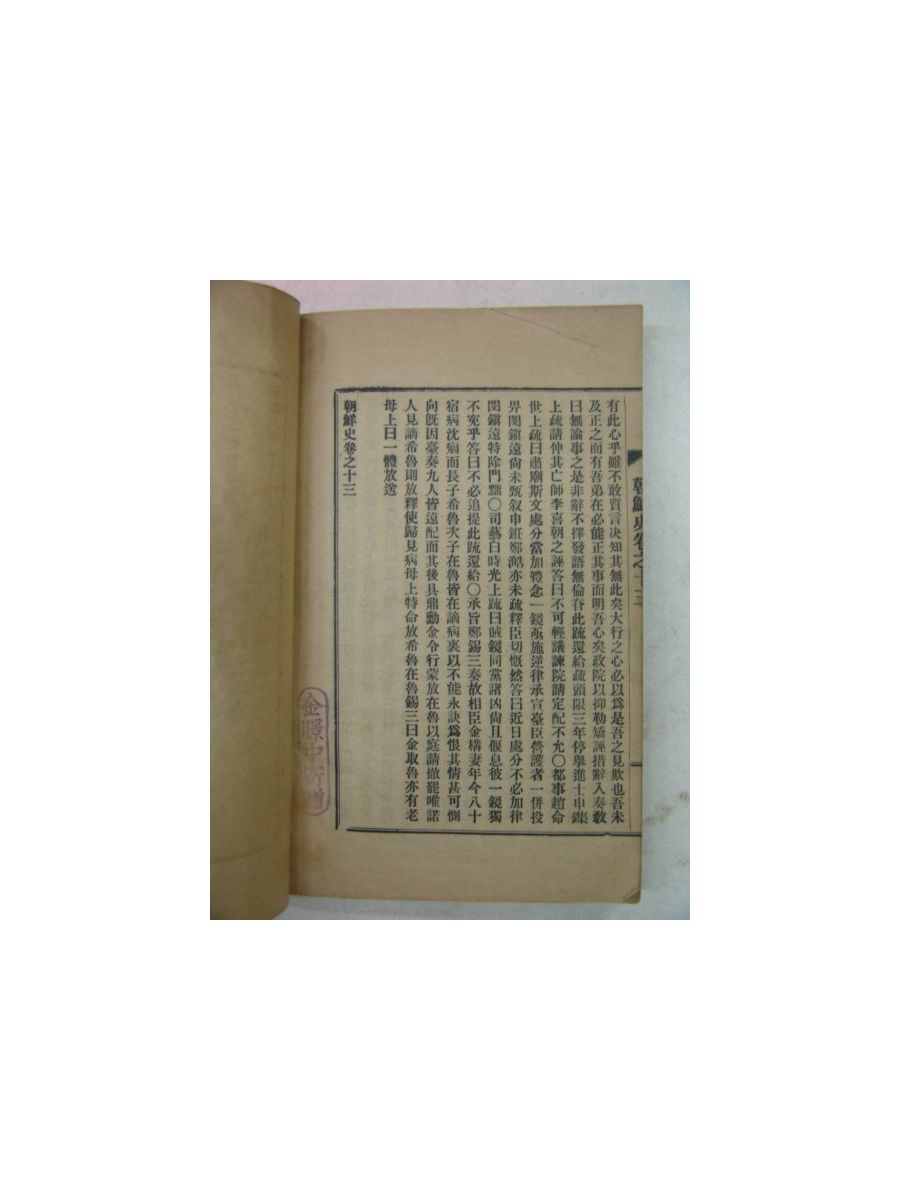 朝鮮史卷之十三
有此心乎雖不敢質言决知其無此矣大行之心必以爲是吾之見欺也吾未
及正之而有吾弟在必能正其事而明吾心矣政院以抑勒矯誣措辭入奏敎
曰無論事之是非辭不擇發語無倫脊此疏還給疏頭限三年停擧進士申鏶
上疏請伸其亡師李喜朝之誣答曰不可輕議諫院請定配不允〇都事趙命
世上疏曰肅廟斯文處分當加軆念一鏡亟施逆律承宣臺臣營護者一併投
畀閔鎭遠尙未甄叙申鋌鄭澔亦未疏釋臣切慨然答曰近日處分不必加律
閔鎭遠特除門黜〇司藝白時光上疏曰賊鏡同黨諸凶尙且偃息彼一鏡獨
不寃乎答曰不必追提此疏還給〇承旨鄭錫三奏故相臣金構妻年今八十
宿病沈痼而長子希魯次子在魯皆在謫病裏以不能永訣爲恨其情甚可惻
向旣因臺奏九人皆遠配而其後具鼎勳金令行蒙放在魯以庭請撤罷唯諾
人見謫希魯則放釋使歸見病母上特命放希魯在魯錫三曰金取魯亦有老
母上曰一體放送
朝鮮史卷之十三
金
中